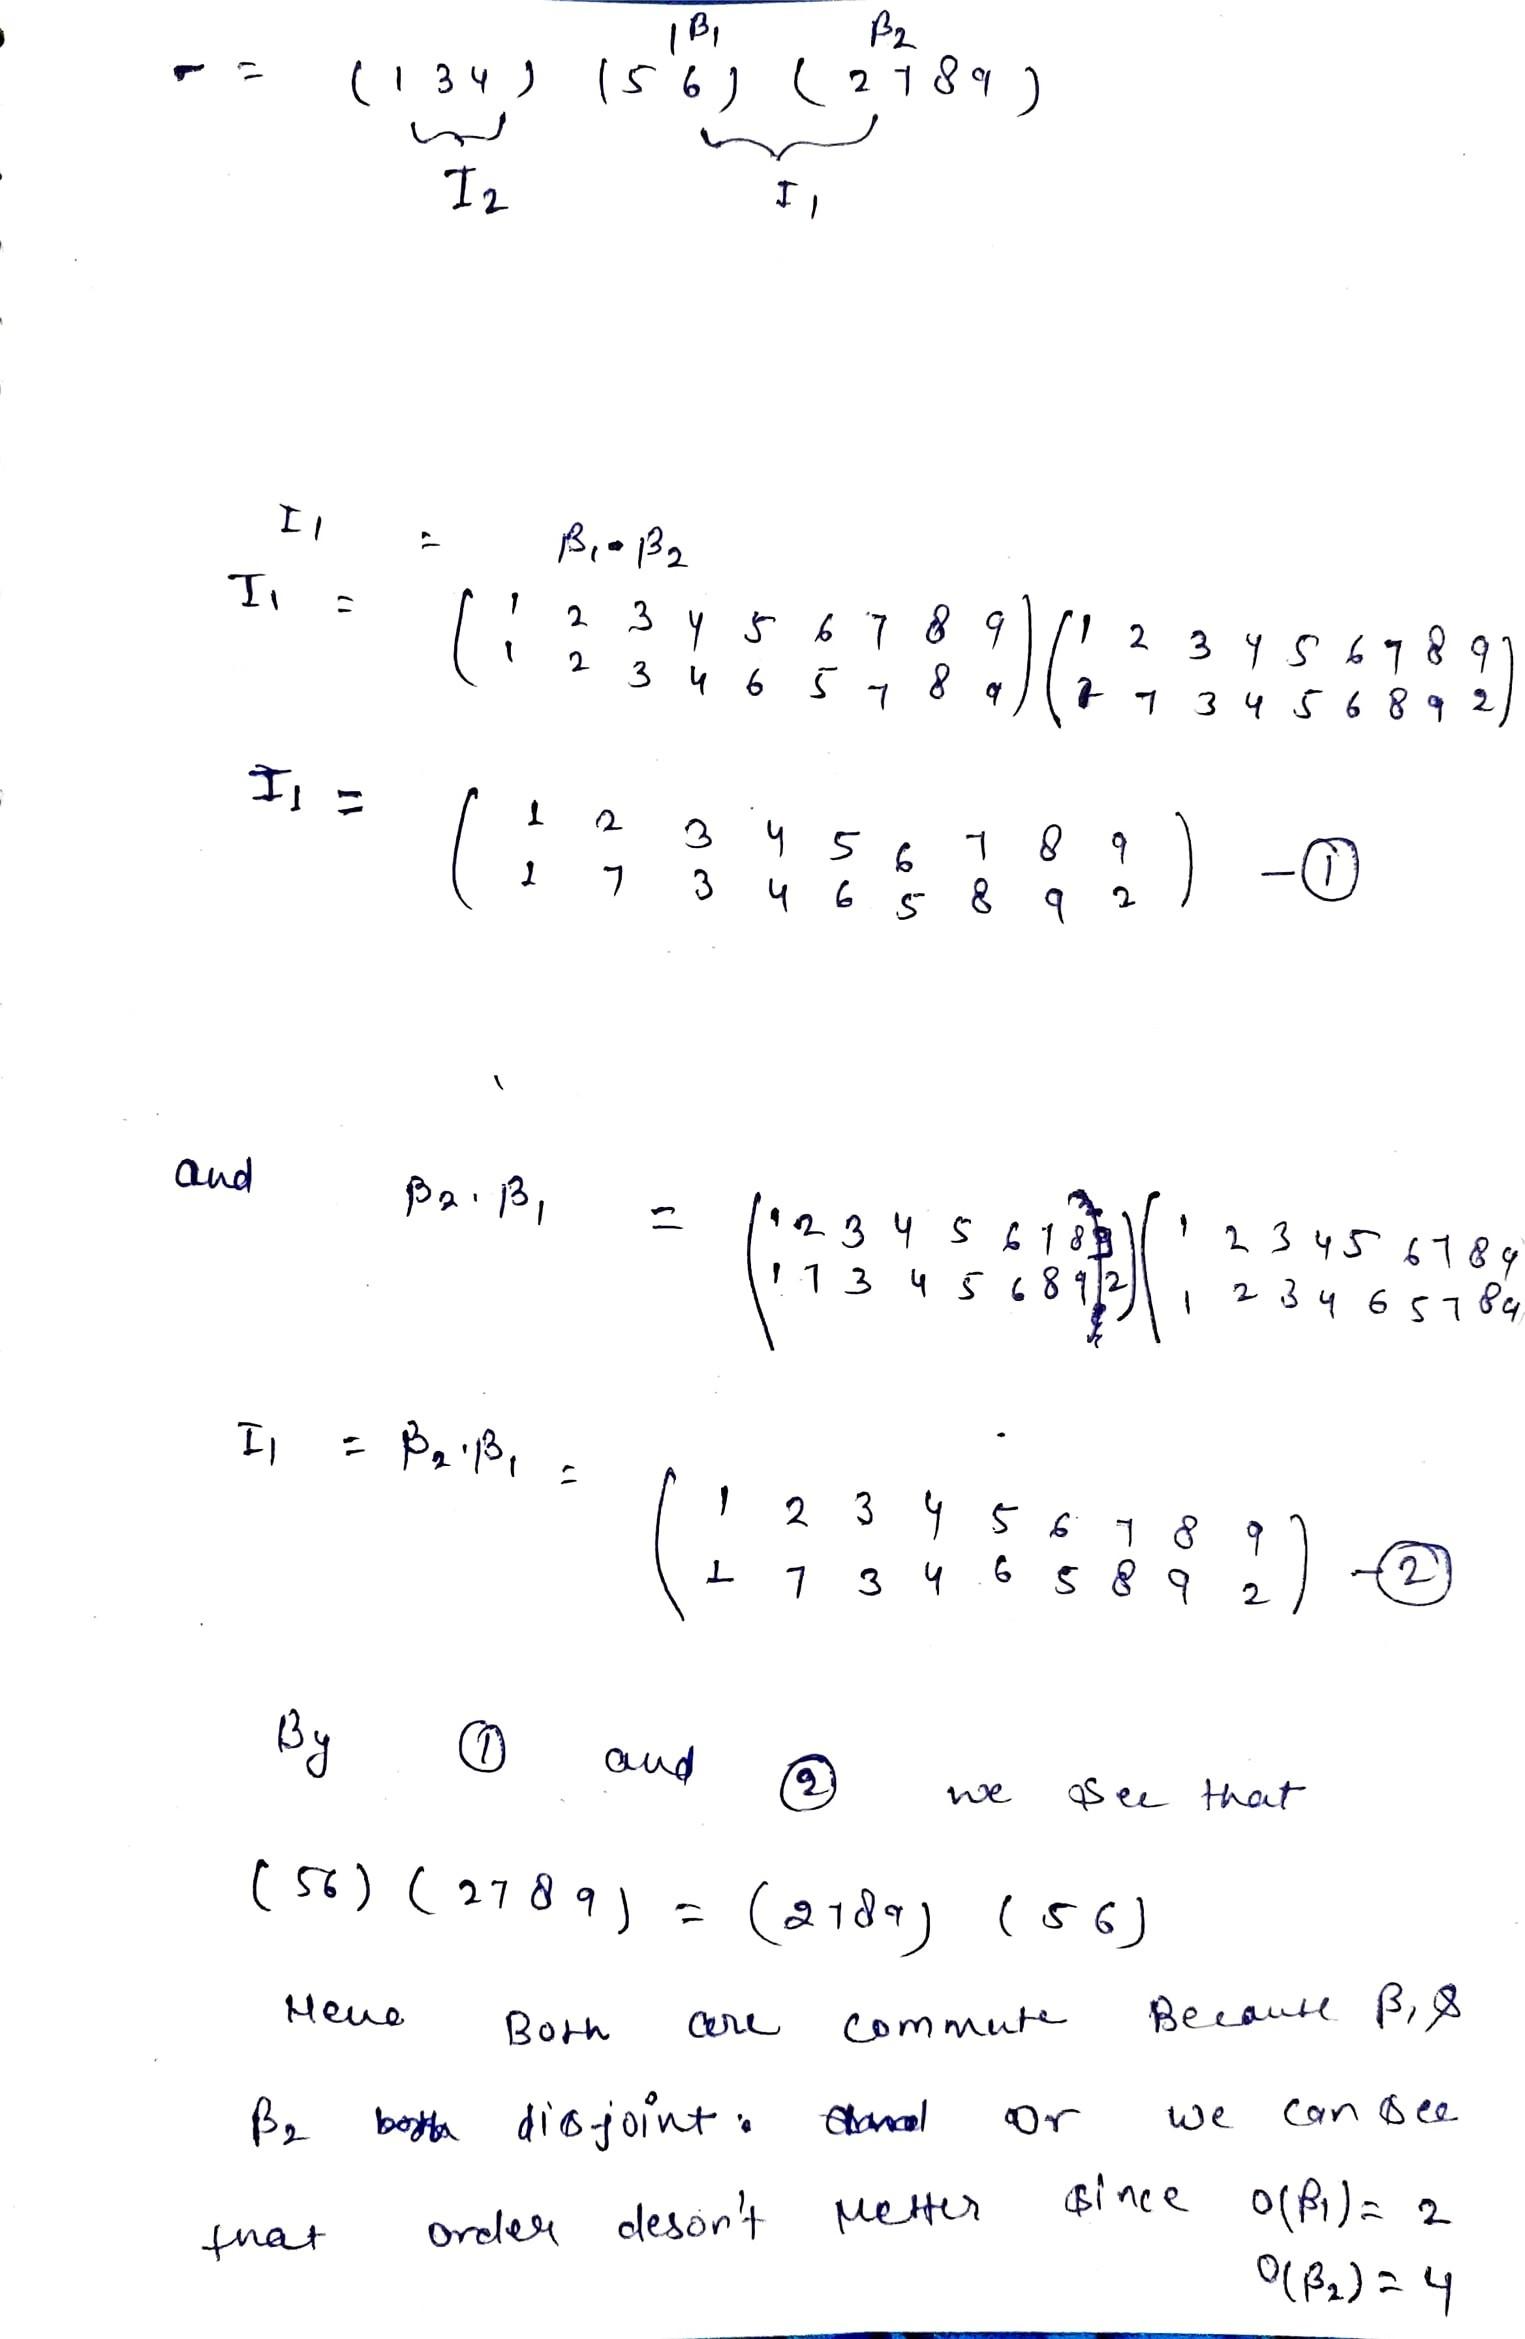 β1 β2
σ = (1 3 4) (5 6) (2 7 8 9)
I2 I1
I1 = β1 · β2
I1 = ( 1 2 3 4 5 6 7 8 9 ) ( 1 2 3 4 5 6 7 8 9 )
1 2 3 4 6 5 7 8 9 7 3 4 5 6 8 9 2
I1 = ( 1 2 3 4 5 6 7 8 9 )
1 7 3 4 6 5 8 9 2 - ①
and β2 · β1 = ( 1 2 3 4 5 6 7 8 9 ) ( 1 2 3 4 5 6 7 8 9
1 7 3 4 5 6 8 9 2 1 2 3 4 6 5 7 8 9
I1 = β2 · β1 = ( 1 2 3 4 5 6 7 8 9 )
1 7 3 4 6 5 8 9 2 - ②
By ① and ② we see that
(56) (2789) = (2789) (56)
Both are commute Because β1 &
β2 both disjoint. or we can see
that order deson't Metter since O(β1) = 2
O(β2) = 4